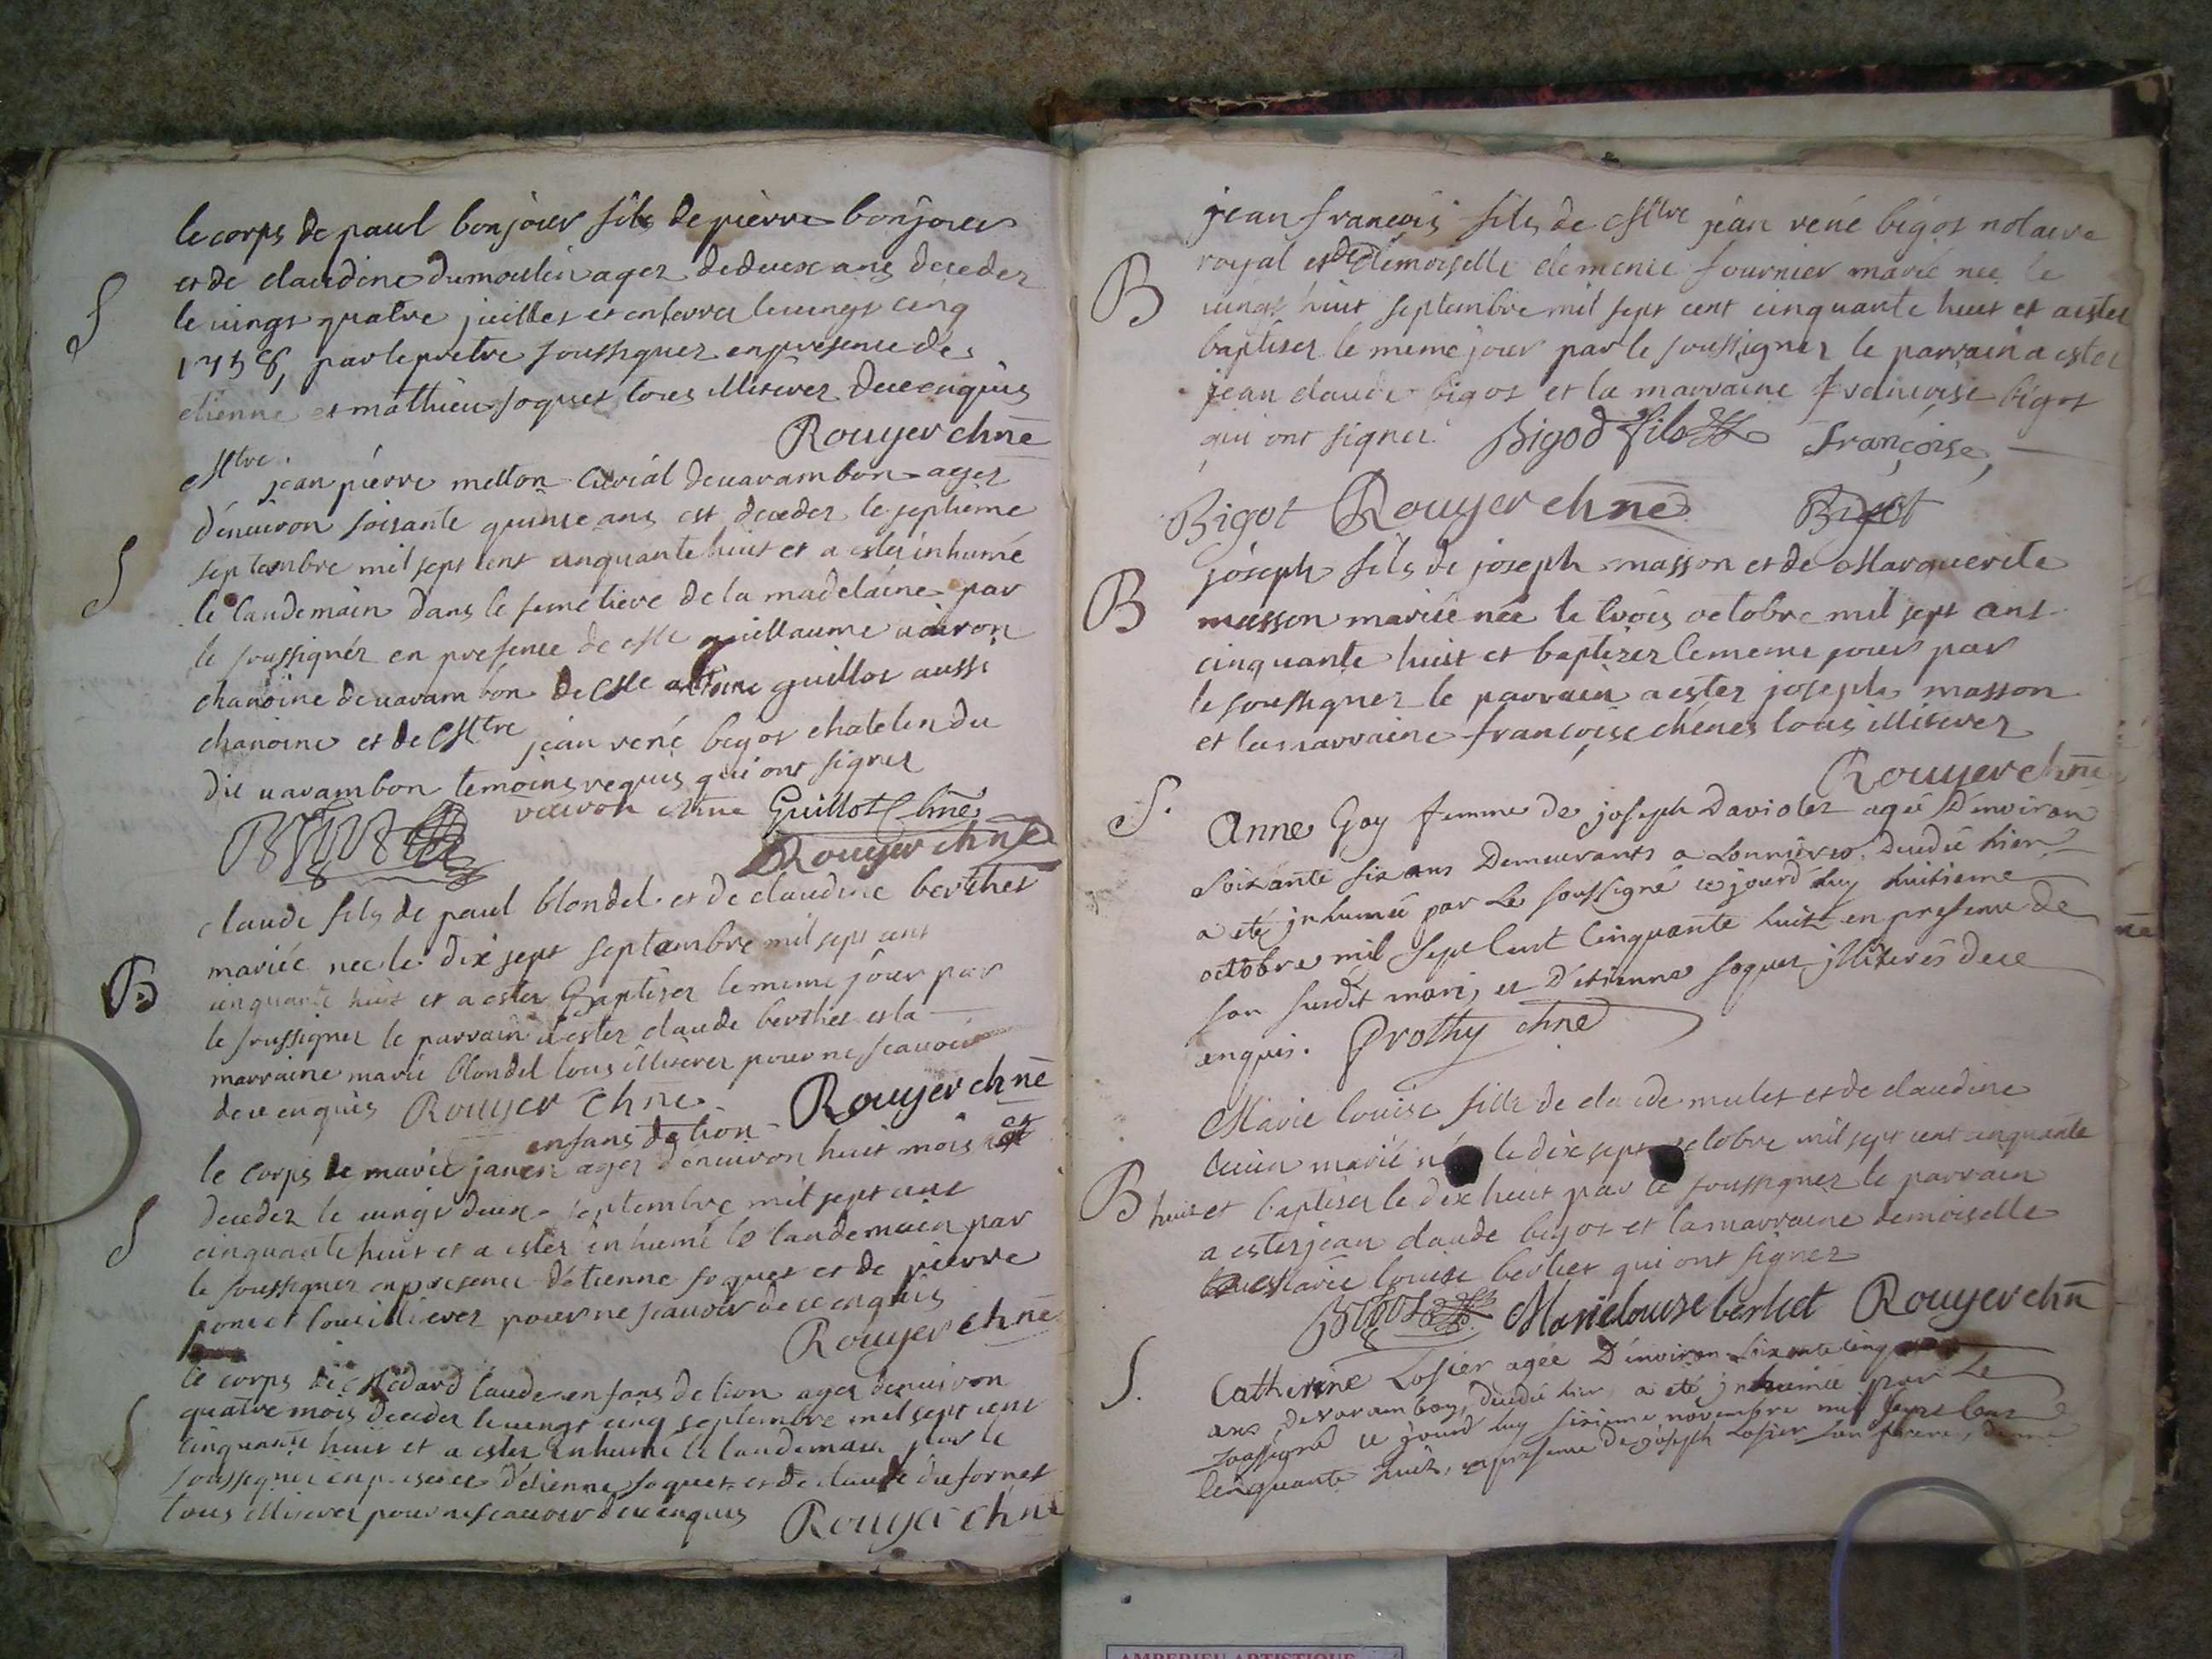 le corps de paul bonjour fils de pierre bonjour
S
et de claudine dumoulin agez de deux ans decedez
le vingt quatre juillet et enterrez le vingt cinq
1758, par le pretre soussignez en presence de
etienne et mathieu soquet tous illiterez de ce enquis
Rouyer chne
Mtre jean pierre metton curial de varambon agez
S
d'environ soixante quinse ans est decedez le septieme
septembre mil sept cent cinquante huit et a estez inhumé
le landemain dans le semetiere de la madelaine par
le soussignéz en presence de Mre guillaume vairon
chanoine de varambon de Mre antoine guillot aussi
chanoine et de Mtre jean rené bigot chatelin du
dit varambon temoins requis qui ont signez
vairon chne Guillot Chne
Bigot
Rouyer chne
claude fils de paul blondel et de claudine berthet
B
mariée nee le dix sept septembre mil sept cent
cinquante huit et a estez Baptisez le meme jour par
le soussignez le parrain a estez claude berthet et la
marraine marie blondel tous illiterez pour ne scavoir
de ce enquis Rouyer Chne Rouyer chne
enfans de lion
le corps de marie janen agez d'environ huit mois est
S
decedez le vingt deux septembre mil sept cent
cinquante huit et a estez inhumé le landemain par
le soussignez en presence d'etienne soquet et de pierre
poncet tous illiterez pour ne scavoir de ce enquis
Rouyer chne
le corps de Medard laude enfans de lion agez d'environ
S
quatre mois decedez le vingt cinq septembre mil sept cent
cinquante huit et a estez inhumé le landemain par le
soussignez en presence d'etienne soquet et de claude dufornet
tous illiterez pour ne scavoir de ce enquis Rouyer chne
jean francois fils de Mtre jean rené bigot notaire
B
royal et de demoiselle clemence fournier marié nee le
vingt huit septembre mil sept cent cinquante huit et a estez
baptisez le meme jour par le soussignez le parrain a estez
jean claude bigot et la marraine francoise bigot
qui ont signez. Bigod fils Françoise,
Bigot Rouyer chne Bigot
joseph fils de joseph masson et de Marguerite
B
masson mariée née le trois octobre mil sept cent
cinquante huit et baptisez le meme jour par
le soussignez le parrain a estez joseph masson
et la marraine francoise chenes tous illiterez
Rouyer chne
S.
Anne Goy femme de joseph Daviolet agée D'environ
soixante six ans Demeurants a , decedée hier
a eté jnhumée par Le soussigné ce jourd'huy huitieme
octobre mil sept Cent Cinquante huit en presence de
son susdit mari, et D'etienne soquet jlliterés de ce
enquis. Prothy chne
Marie louise fille de claude mulet et de claudine
cuvien marié née le dix sept octobre mil sept cent cinquante
B
huit et baptisez le dix huit par le soussignez le parrain
a estez jean claude bigot et la marraine demoiselle
Marie louise berliet qui ont signez
Bigot Marie louise berliet Rouyer chn
S.
Catherine Losier agée D'environ soixante cinq
ans, de varambon, decedée hier, a eté jnhumée par Le
soussigné ce jourd'huy sixieme novembre mil sept Cent
Cinquante huit, en presence de joseph Losier son frere,
AMBERIEU ARTISTIQUE